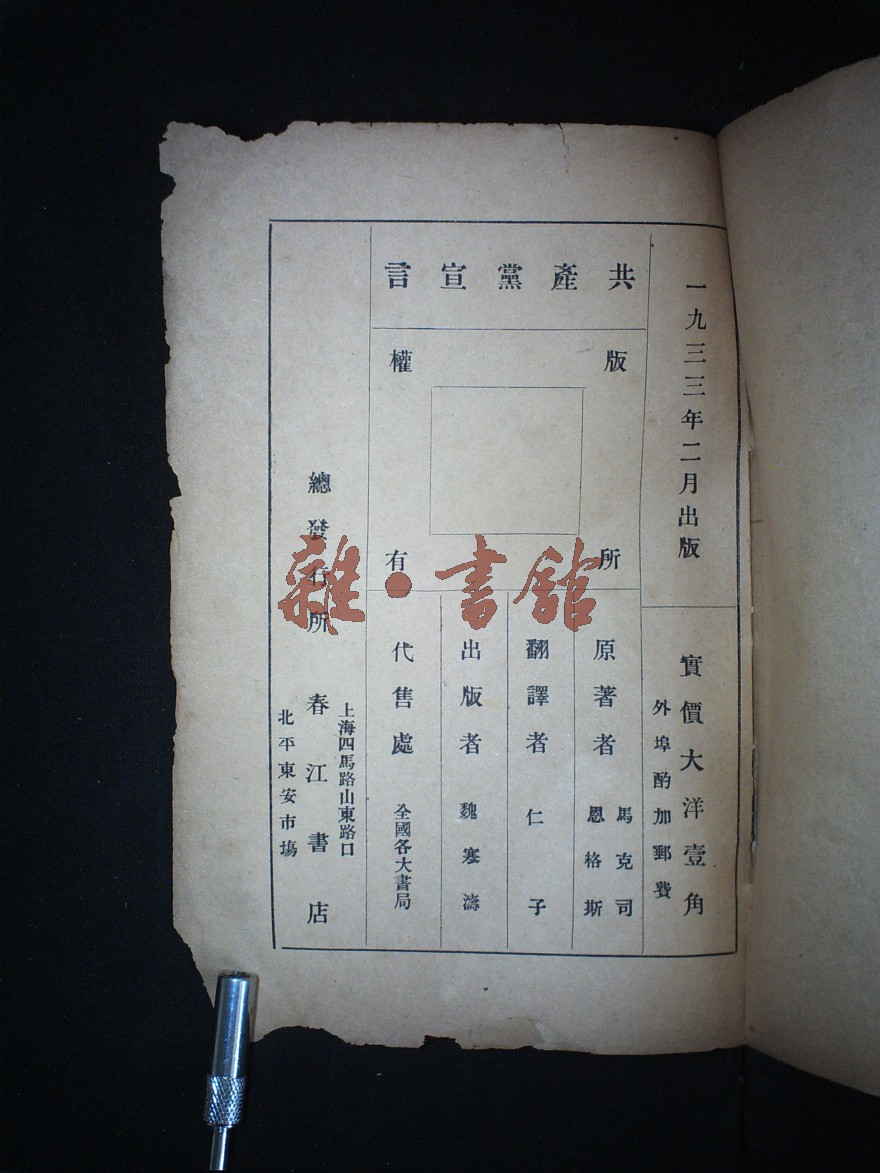 一九三三年二月出版
實價大洋壹角
外埠酌加郵費
共產黨宣言
版權所有
原著者 馬克司
恩格斯
翻譯者 仁子
出版者 魏寒濤
代售處 全國各大書局
上海四馬路山東路口
總發行所 春江書店
北平東安市塲
雜·書館